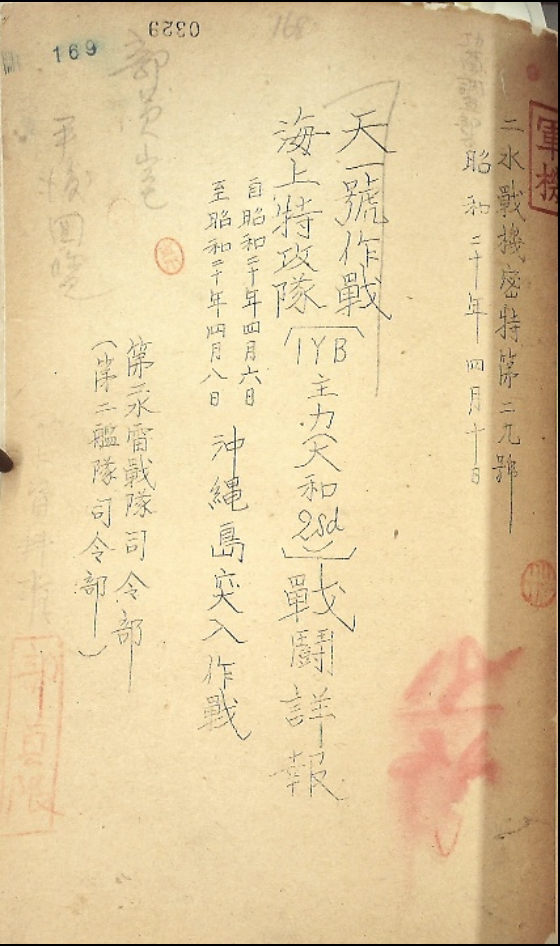 軍機
二水戰機密特第二九號
昭和二十年四月十日
天一號作戰
海上特攻隊(1YB主力(大和2Sd))戰鬪詳報
自昭和二十年四月六日
至昭和二十年四月八日
沖縄島突入作戰
第二水雷戰隊司令部
(第二艦隊司令部)
0329
169
部員限